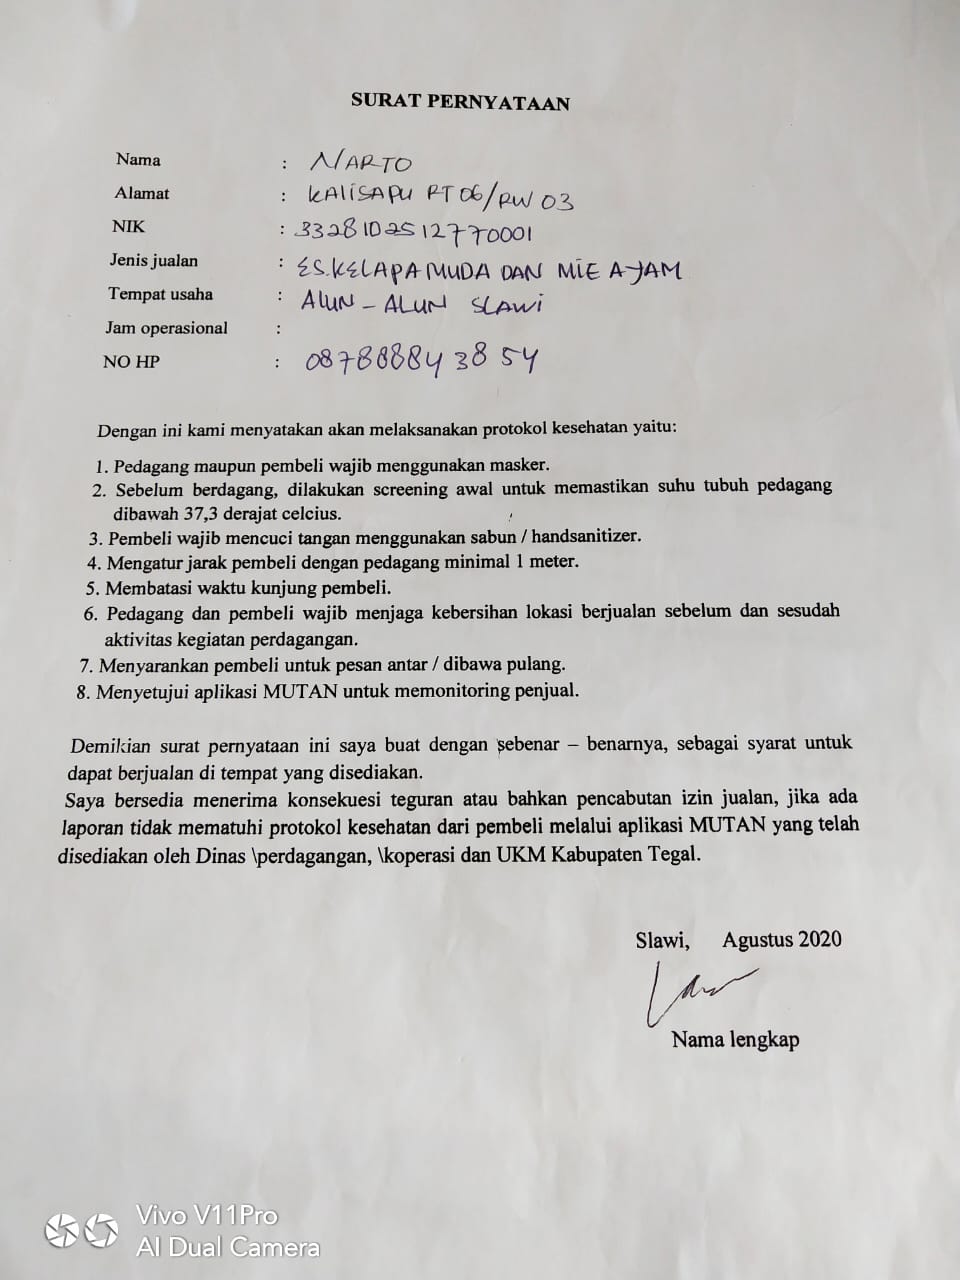 SURAT PERNYATAAN
Nama : NARTO
Alamat : KALISAPU RT 06/RW 03
NIK : 3328102512770001
Jenis jualan : ES.KELAPA MUDA DAN MIE AYAM
Tempat usaha : ALUN - ALUN SLAWI
Jam operasional :
NO HP : 087888843854
Dengan ini kami menyatakan akan melaksanakan protokol kesehatan yaitu:
1. Pedagang maupun pembeli wajib menggunakan masker.
2. Sebelum berdagang, dilakukan screening awal untuk memastikan suhu tubuh pedagang
dibawah 37,3 derajat celcius.
3. Pembeli wajib mencuci tangan menggunakan sabun / handsanitizer.
4. Mengatur jarak pembeli dengan pedagang minimal 1 meter.
5. Membatasi waktu kunjung pembeli.
6. Pedagang dan pembeli wajib menjaga kebersihan lokasi berjualan sebelum dan sesudah
aktivitas kegiatan perdagangan.
7. Menyarankan pembeli untuk pesan antar / dibawa pulang.
8. Menyetujui aplikasi MUTAN untuk memonitoring penjual.
Demikian surat pernyataan ini saya buat dengan sebenar – benarnya, sebagai syarat untuk
dapat berjualan di tempat yang disediakan.
Saya bersedia menerima konsekuesi teguran atau bahkan pencabutan izin jualan, jika ada
laporan tidak mematuhi protokol kesehatan dari pembeli melalui aplikasi MUTAN yang telah
disediakan oleh Dinas \perdagangan, \koperasi dan UKM Kabupaten Tegal.
Slawi, Agustus 2020
Nama lengkap
Vivo V11Pro
AI Dual Camera